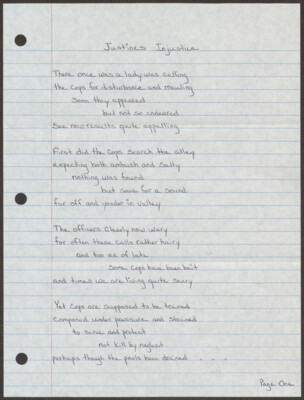 Justines Injustice
There once was a lady was calling
the cops for disturbance and mauling
soon they appeared
but not so endeared
See now results quite appalling
First did the cops search the alley
expecting both ambush and sally
nothing was found
but save for a sound
far off and yonder in valley
The officers clearly now wary
for often these calls rather hairy
and too as of late
some cops have been bait
and times we are living quite scary
Yet cops are supposed to be trained
composed under pressure and strained
to serve and protect
not kill by neglect
perhaps though the pools been drained . . .
Page One